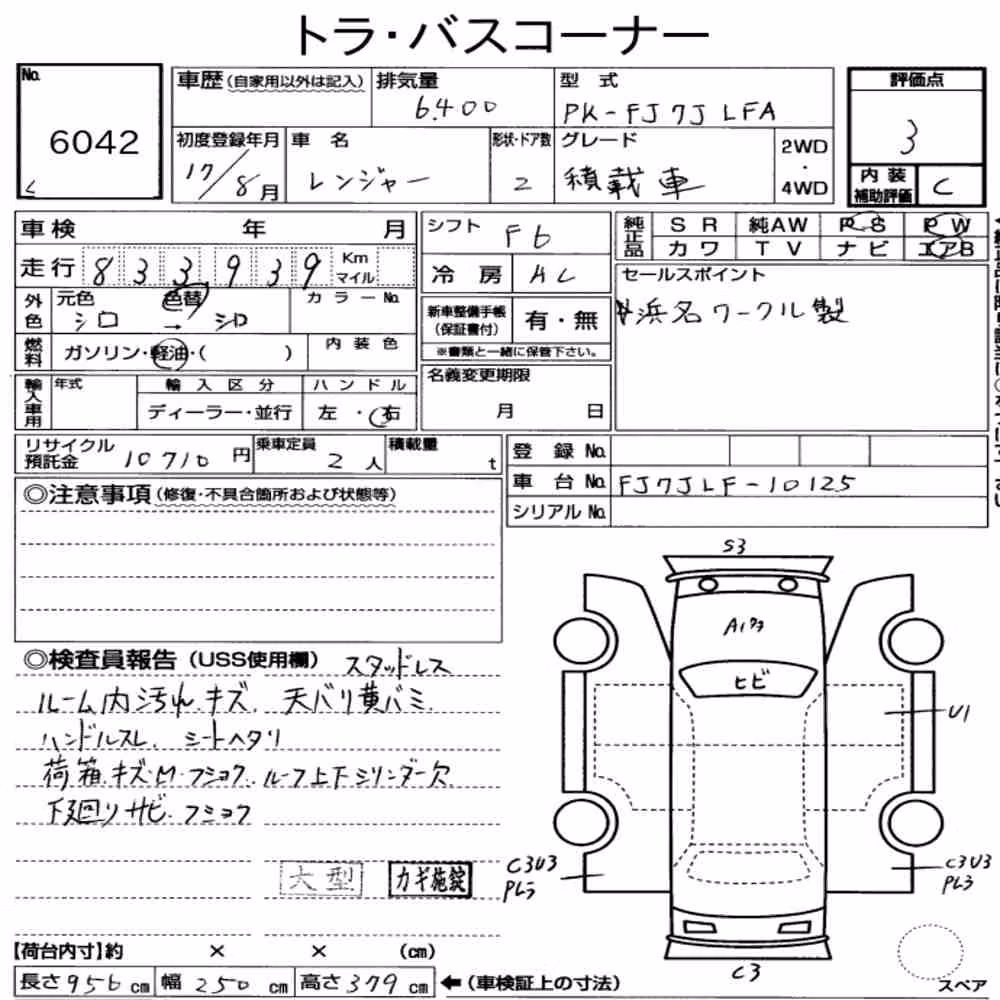 トラ・バスコーナー
No.
6042
車歴(自家用以外は記入)
排気量
6.400
型 式
PK-FJ7JLFA
評価点
3
初度登録年月
17/8月
車 名
レンジャー
形状・ドア数
2
グレード
積載車
2WD
・
4WD
内装
補助評価
C
車検 年 月
シフト
F6
純正品
SR 純AW PS PW
カワ TV ナビ エアB
走行 833939 Km
マイル
冷 房
AC
セールスポイント
浜名ワークル製
外色
元色
シロ
→
色替
シロ
カラーNo.
新車整備手帳
(保証書付)
有・無
※書類と一緒に保管下さい。
燃料
ガソリン・軽油・( )
内装色
名義変更期限
月 日
輸入車用
年式
輸入区分
ディーラー・並行
ハンドル
左・右
リサイクル
預託金
10710円
乗車定員
2人
積載量
t
登 録 No.
車 台 No.
FJ7JLF-10125
シリアル No.
◎注意事項(修復・不具合箇所および状態等)
◎検査員報告(USS使用欄) スタッドレス
ルーム内汚れ.キズ. 天バリ黄バミ.
ハンドルスレ. シートヘタリ
荷箱.キズ.M.フショク. ルーフ上下シリンダー欠
下廻りサビ.フショク
大型
カギ施錠
S3
ヒビ
U1
C3U3
PL3
C3U3
PL3
C3
スペア
【荷台内寸】約 × × (cm)
長さ956cm 幅250cm 高さ379cm
←(車検証上の寸法)